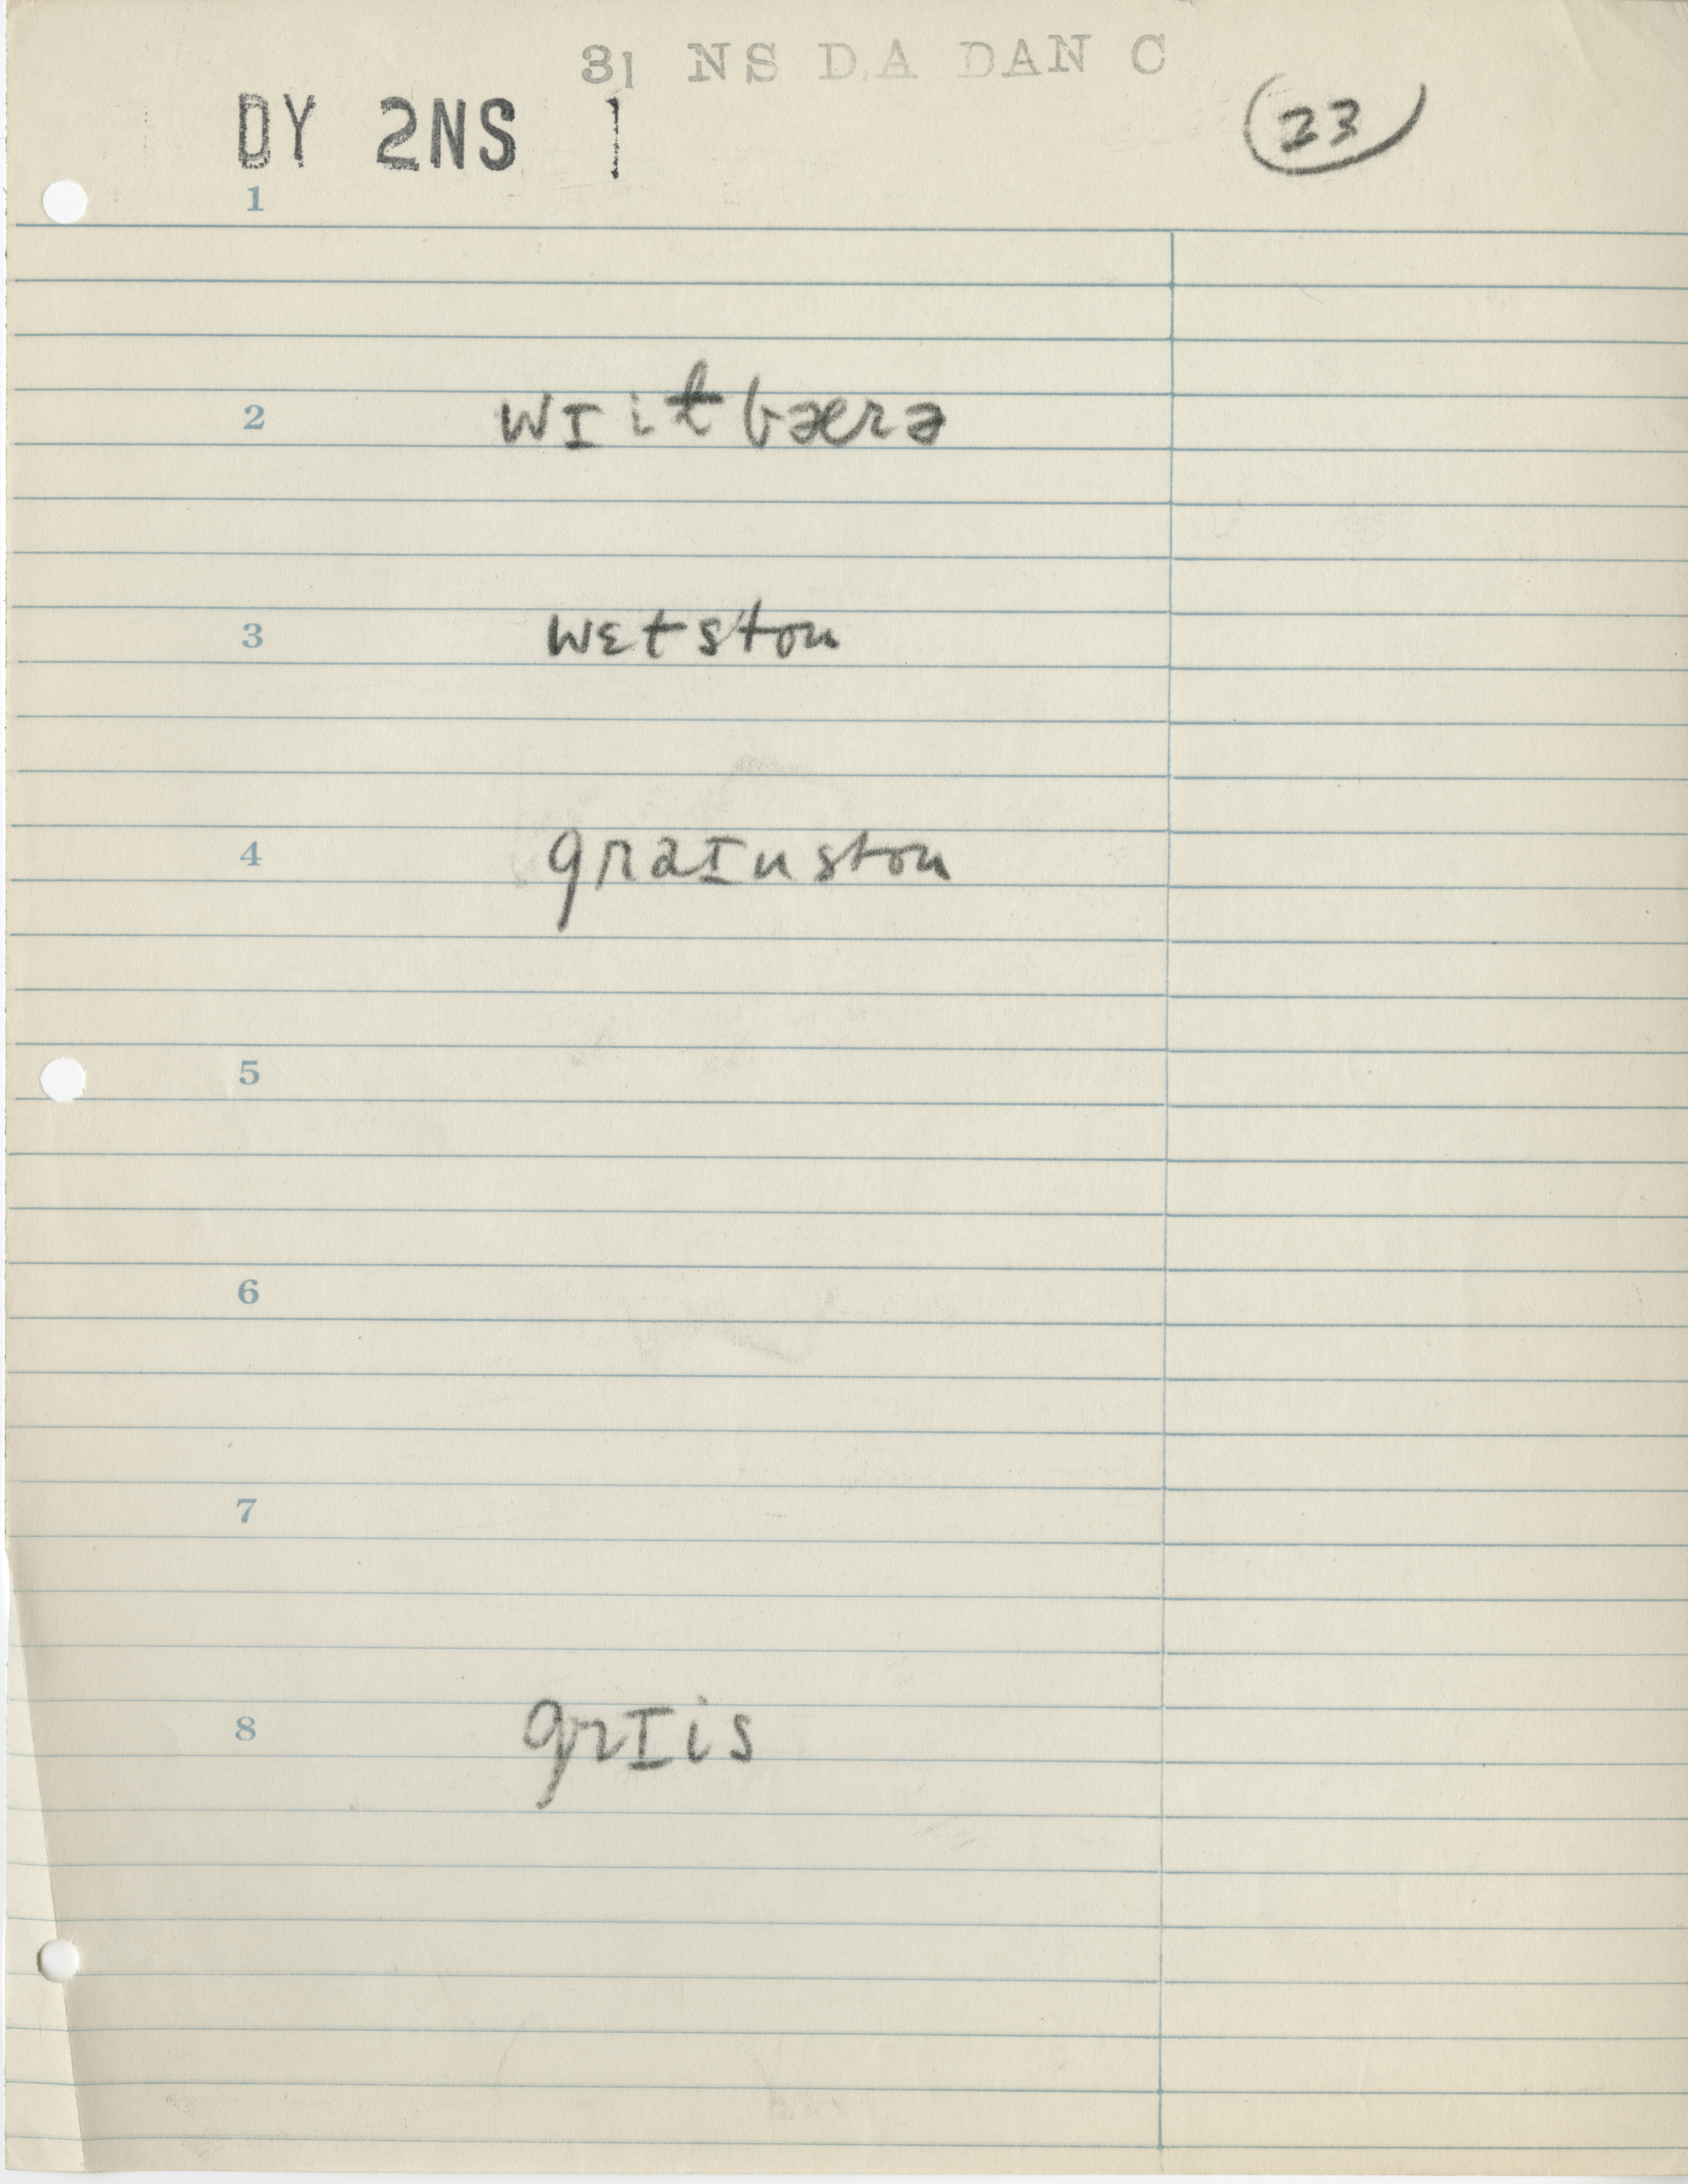 31 NS D.A DAN C
DY 2NS 1
23
1
2 wɪitbærə
3 wɛtston
4 graɪnston
5
6
7
8 grɪis